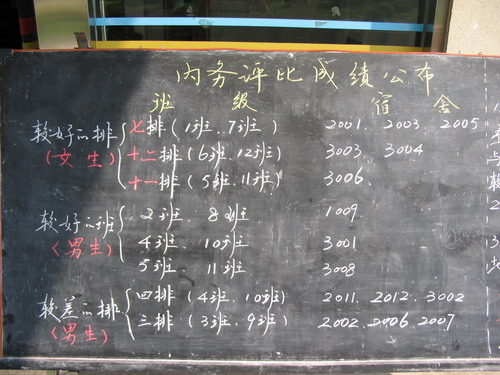 内务评比成绩公布
班 级 宿 舍
较好的排 七排(1班、7班) 2001、2003、2005
(女生) 十二排(6班、12班) 3003、3004
十一排(5班、11班) 3006、
较好的班 2班、8班 1009
(男生) 4班、10班 3001
5班、11班 3008
较差的排 四排(4班、10班) 2011、2012、3002
(男生) 三排(3班、9班) 2002、2006、2007